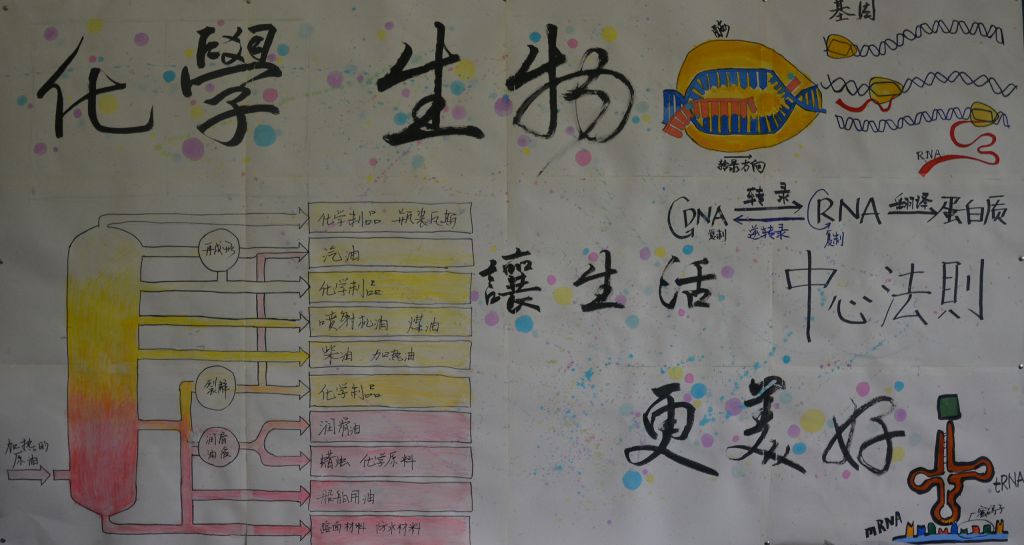 化學 生物
基因
酶
转录方向
RNA
DNA 转录 RNA 翻译 蛋白质
复制 逆转录 复制
讓生活
中心法則
更美好
加热的
原油
化学制品 瓶装瓦斯
汽油
化学制品
喷射机油 煤油
柴油 加热油
裂解
化学制品
润滑油
蜡烛 化学原料
一般船用油
路面材料 防水材料
tRNA
mRNA